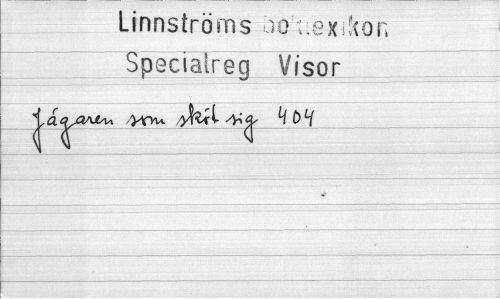 Linnströms boklexikon
Specialreg Visor
Jägaren som sköt sig 404